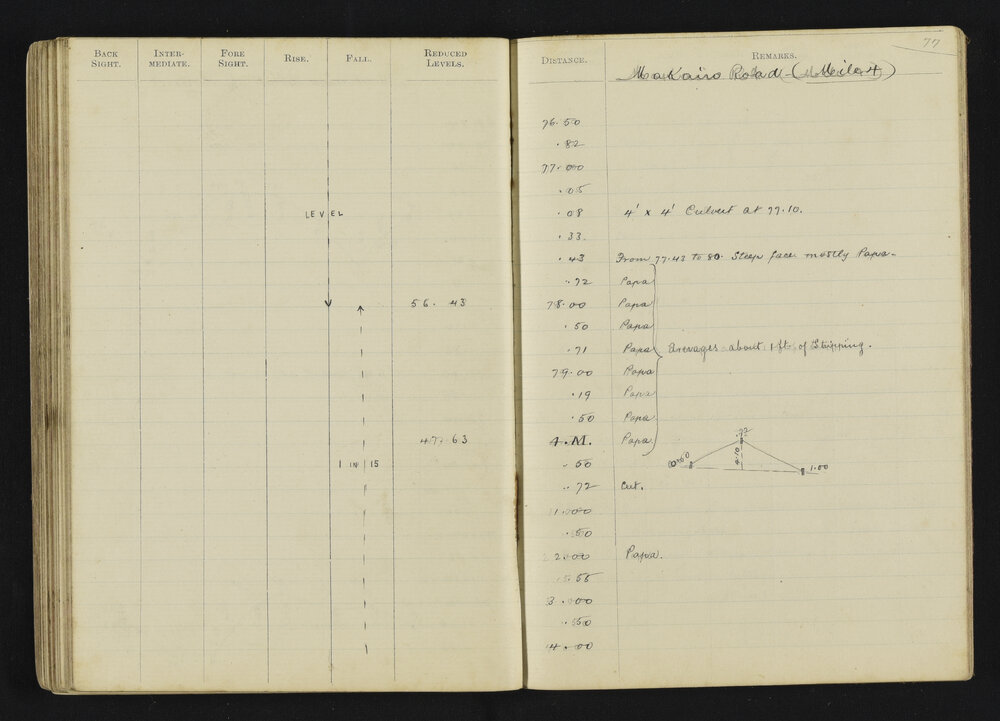 77
BACK SIGHT. INTER-MEDIATE. FORE SIGHT. RISE. FALL. REDUCED LEVELS. DISTANCE. REMARKS.
Makairo Road (Mile 4)
76.50
.82
77.00
.05
LEVEL .08 4' x 4' Culvert at 77.10.
.33
.43 From 77.43 to 80. Steep face mostly Papa.
.72 Papa
56.43 78.00 Papa
.50 Papa
.71 Papa averages about 1 ft. of Stripping.
79.00 Papa
.19 Papa
.50 Papa
47.63 4.M. Papa
.72
4.10
0.60
1.00
1 IN 15 .50
.72 Cut.
1.00
.50
2.00 Papa.
.55
3.00
.50
4.00